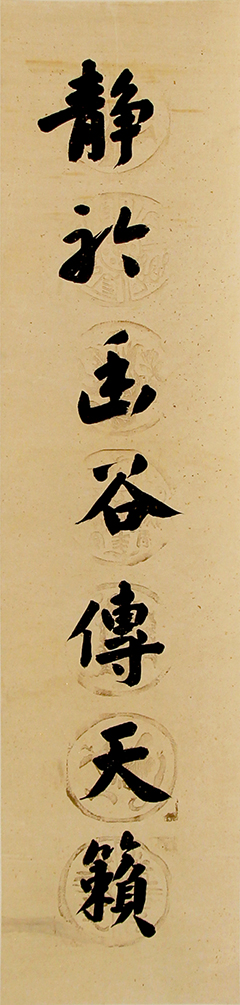 静於幽谷傳天籟